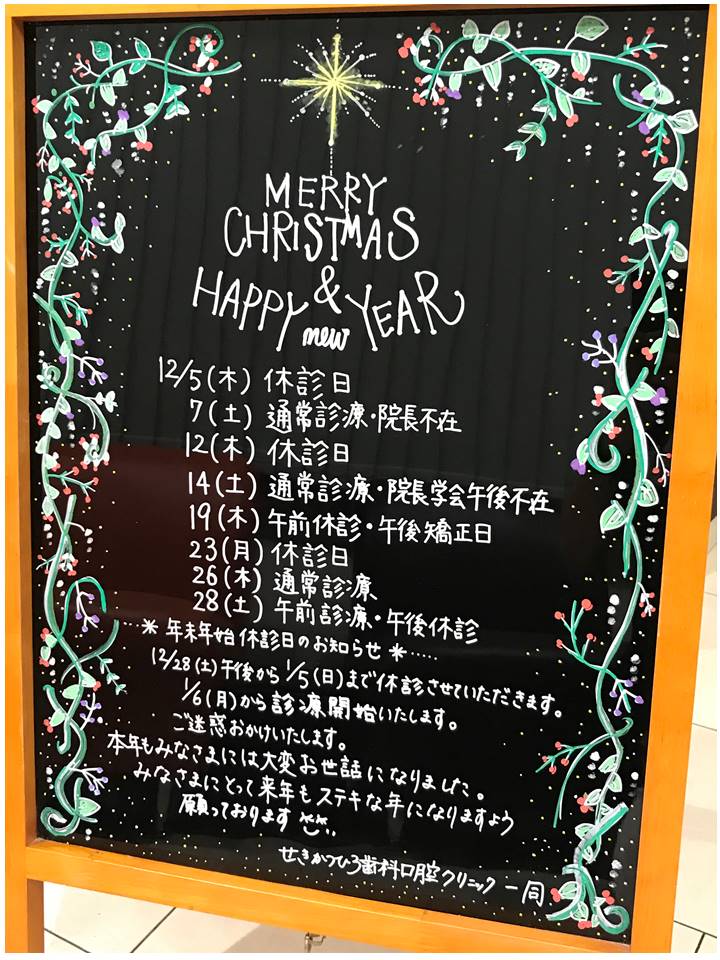 MERRY
CHRISTMAS
&
HAPPY new YEAR
12/5(木) 休診日
7(土) 通常診療・院長不在
12(木) 休診日
14(土) 通常診療・院長学会午後不在
19(木) 午前休診・午後矯正日
23(月) 休診日
26(木) 通常診療
28(土) 午前診療・午後休診
‥‥※ 年末年始休診日のお知らせ ※‥‥
12/28(土)午後から 1/5(日)まで休診させていただきます。
1/6(月)から診療開始いたします。
ご迷惑おかけいたします。
本年もみなさまには大変お世話になりました。
みなさまにとって来年もステキな年になりますよう
願っております
せきかつひろ歯科口腔クリニック 一同